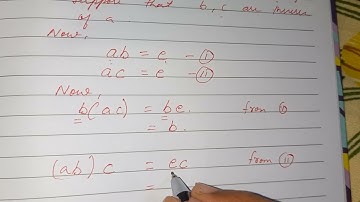 suppose that b, c are inverses
of a.
Now,
ab = e - (i)
ac = e - (ii)
Now,
b(ac) = be. from (i)
= b.
(ab) c = ec from (ii)
=